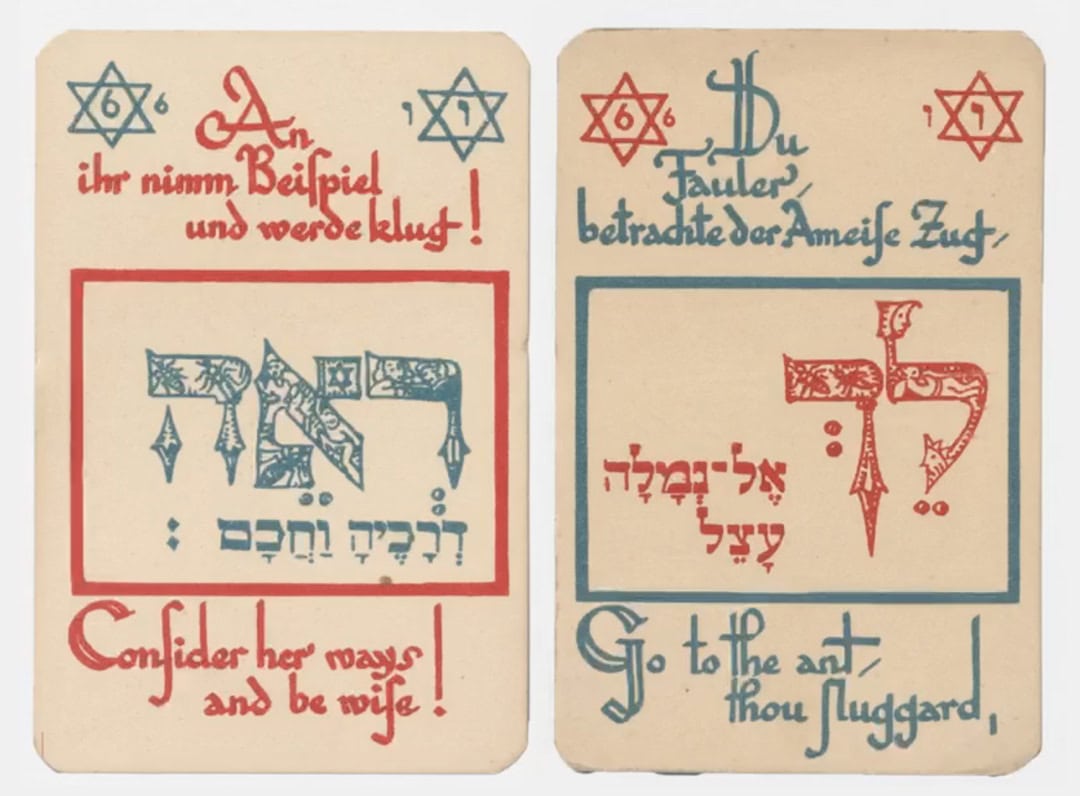 6 6 ו ו
An
ihr nimm Beiſpiel
und werde klug!
רְאֵה
דְרָכֶיהָ וַחֲכָם :
Conſider her ways
and be wiſe!
6 6 ו ו
Du
Fauler/
betrachte der Ameiſe Zug/
לֵךְ
אֶל־נְמָלָה
עָצֵל
Go to the ant/
thou ſluggard,